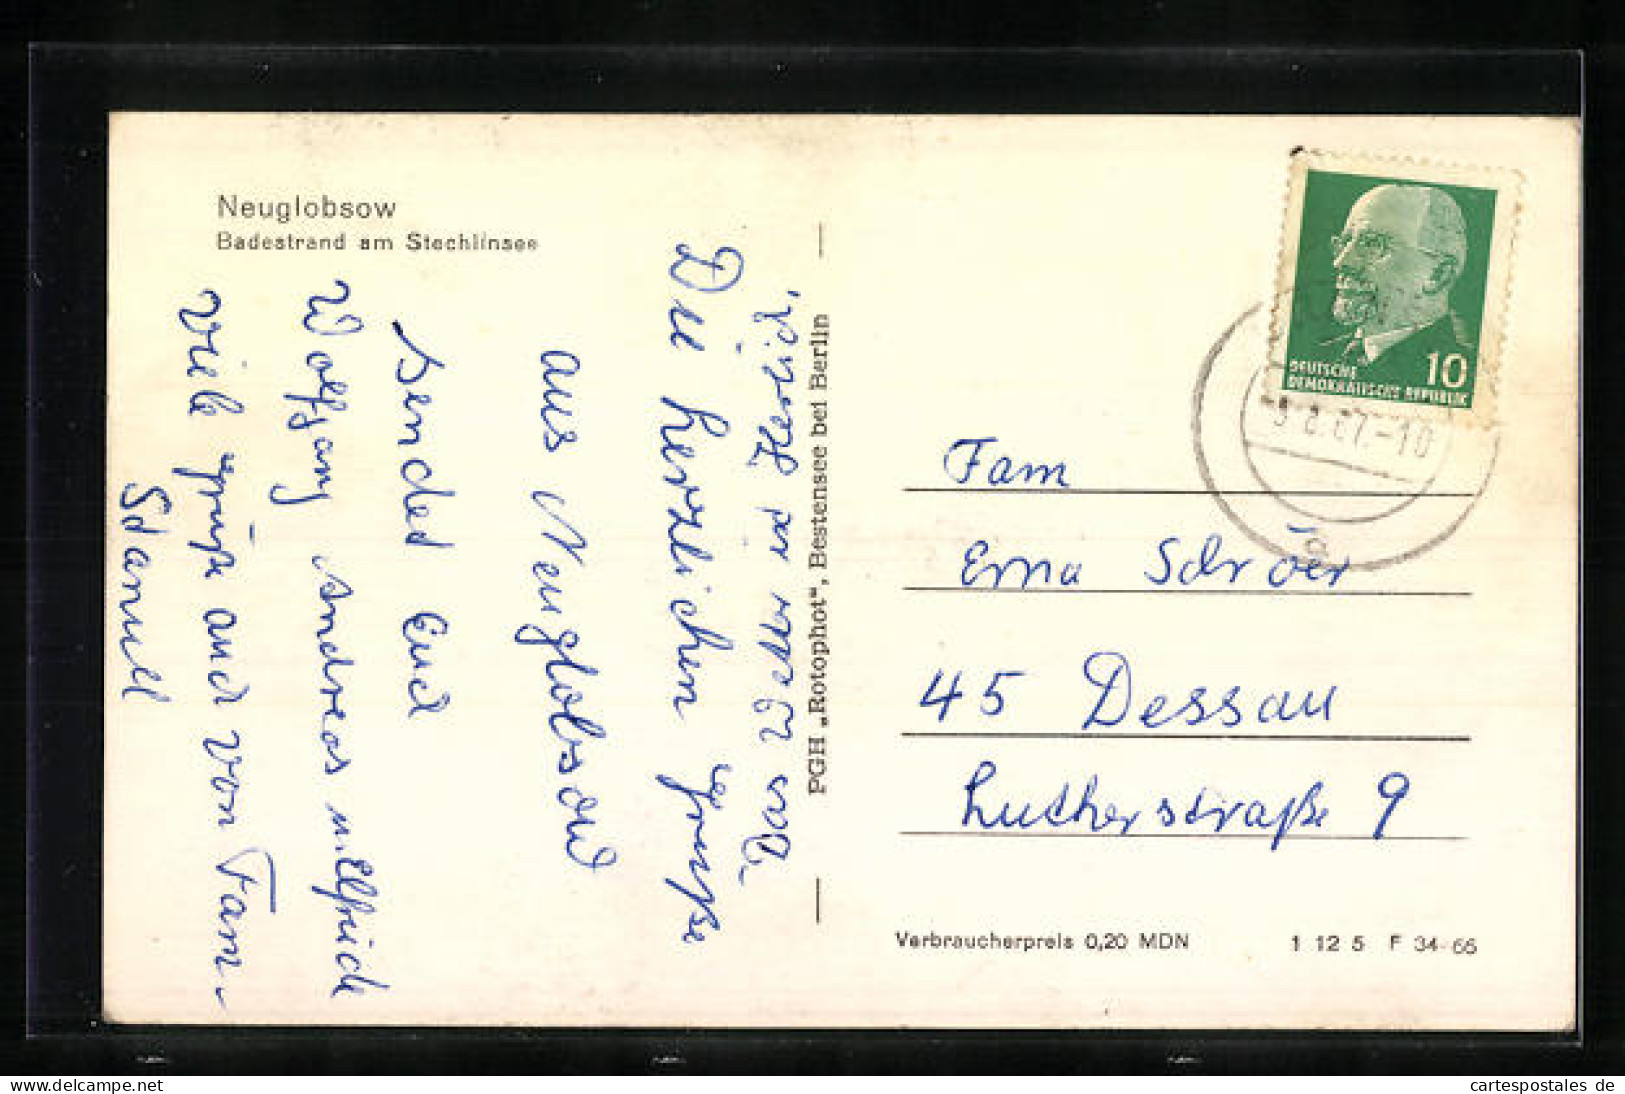 Neuglobsow
Badestrand am Stechlinsee
Das Wetter ist Herlich,
Die herzlichen Grüße
aus Neuglobsow
senden Euch
Wolfgang Andreas u. Elfride
viele grüße auch von Fam.
PGH „Rotophot“, Bestensee bei Berlin
10
DEUTSCHE
DEMOKRATISCHE REPUBLIK
8.67.-10
Fam
Erna Schröer
45 Dessau
Lutherstraße 9
Verbraucherpreis 0,20 MDN 1 12 5 F 34-66
Tout sur la carte postale
cartespostales de